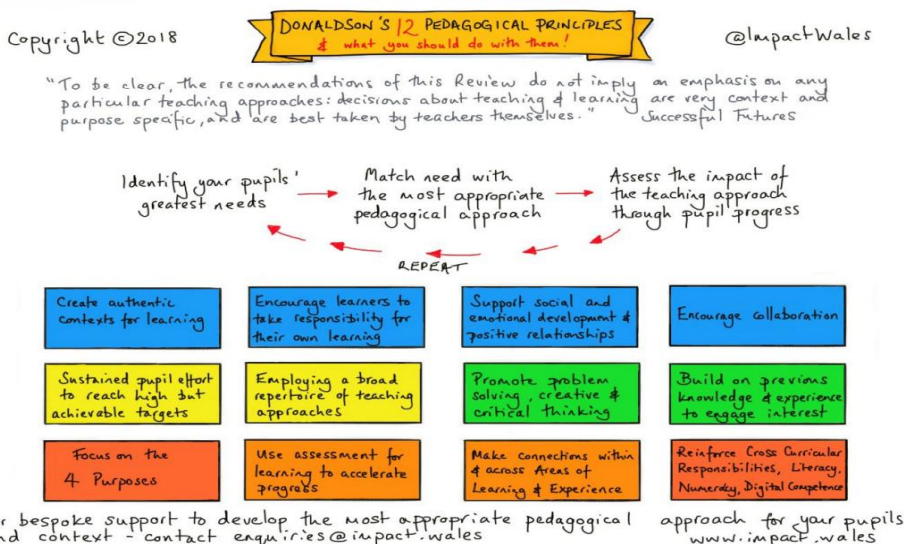 Copyright ©2018
DONALDSON'S 12 PEDAGOGICAL PRINCIPLES
& what you should do with them!
@ImpactWales
"To be clear, the recommendations of this Review do not imply an emphasis on any
particular teaching approaches: decisions about teaching & learning are very context and
purpose specific, and are best taken by teachers themselves." Successful Futures
Identify your pupils'
greatest needs
Match need with
the most appropriate
pedagogical approach
Assess the impact of
the teaching approach
through pupil progress
REPEAT
Create authentic
contexts for learning
Encourage learners to
take responsibility for
their own learning
Support social and
emotional development &
positive relationships
Encourage collaboration
Sustained pupil effort
to reach high but
achievable targets
Employing a broad
repertoire of teaching
approaches
Promote problem
solving, creative &
critical thinking
Build on previous
knowledge & experience
to engage interest
Focus on the
4 Purposes
Use assessment for
learning to accelerate
progress
Make connections within
& across Areas of
Learning & Experience
Reinforce Cross Curricular
Responsibilities, Literacy,
Numeracy, Digital Competence
r bespoke support to develop the most appropriate pedagogical approach for your pupils
nd context - contact enquiries@impact.wales www.impact.wales